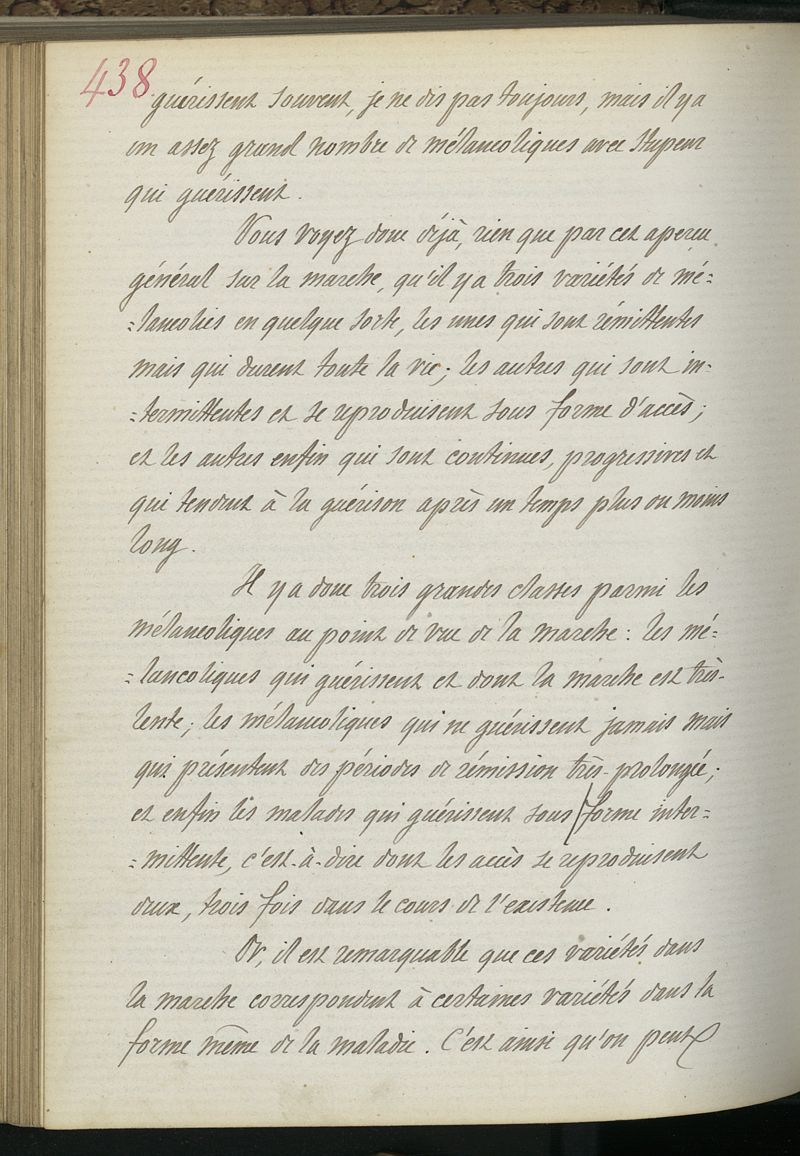 438
guérissent souvent, je ne dis pas toujours, mais il y a
un assez grand nombre de mélancoliques avec stupeur
qui guérissent.
Vous voyez donc déjà, rien que par cet apercu
général sur la marche, qu'il y a trois variétés de mé-
-lancolies en quelque sorte, les unes qui sont rémittentes
mais qui durent toute la vie; les autres qui sont in-
-termittentes et se reproduisent sous forme d'accès;
et les autres enfin qui sont continues, progressives et
qui tendent à la guérison après un temps plus ou moins
long.
Il y a donc trois grandes classes parmi les
mélancoliques au point de vue de la marche: les mé-
-lancoliques qui guérissent et dont la marche est très-
lente; les mélancoliques qui ne guérissent jamais mais
qui présentent des périodes de rémission très-prolongée;
et enfin les malades qui guérissent sous forme inter-
-mittente, c'est-à-dire dont les accès se reproduisent
deux, trois fois dans le cours de l'existence.
Or, il est remarquable que ces variétés dans
la marche correspondent à certaines variétés dans la
forme même de la maladie. C'est ainsi qu'on peut